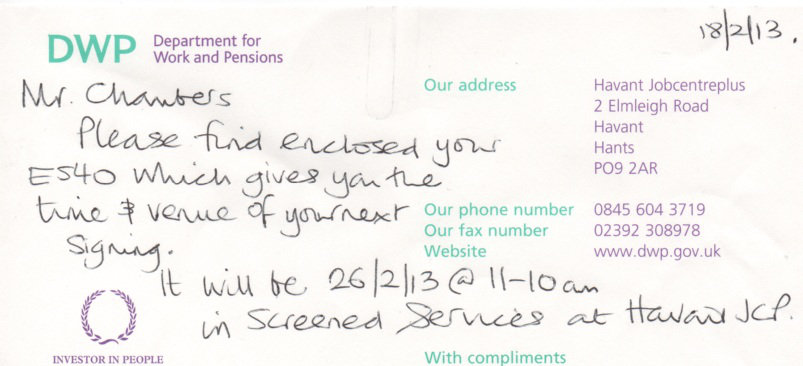 18/2/13.
DWP Department for
Work and Pensions
Mr. Chambers
Please find enclosed your
ES40 which gives you the
time & venue of your next
signing.
It will be 26/2/13 @ 11-10am
in Screened Services at Havant JCP.
Our address
Havant Jobcentreplus
2 Elmleigh Road
Havant
Hants
PO9 2AR
Our phone number 0845 604 3719
Our fax number 02392 308978
Website www.dwp.gov.uk
INVESTOR IN PEOPLE
With compliments